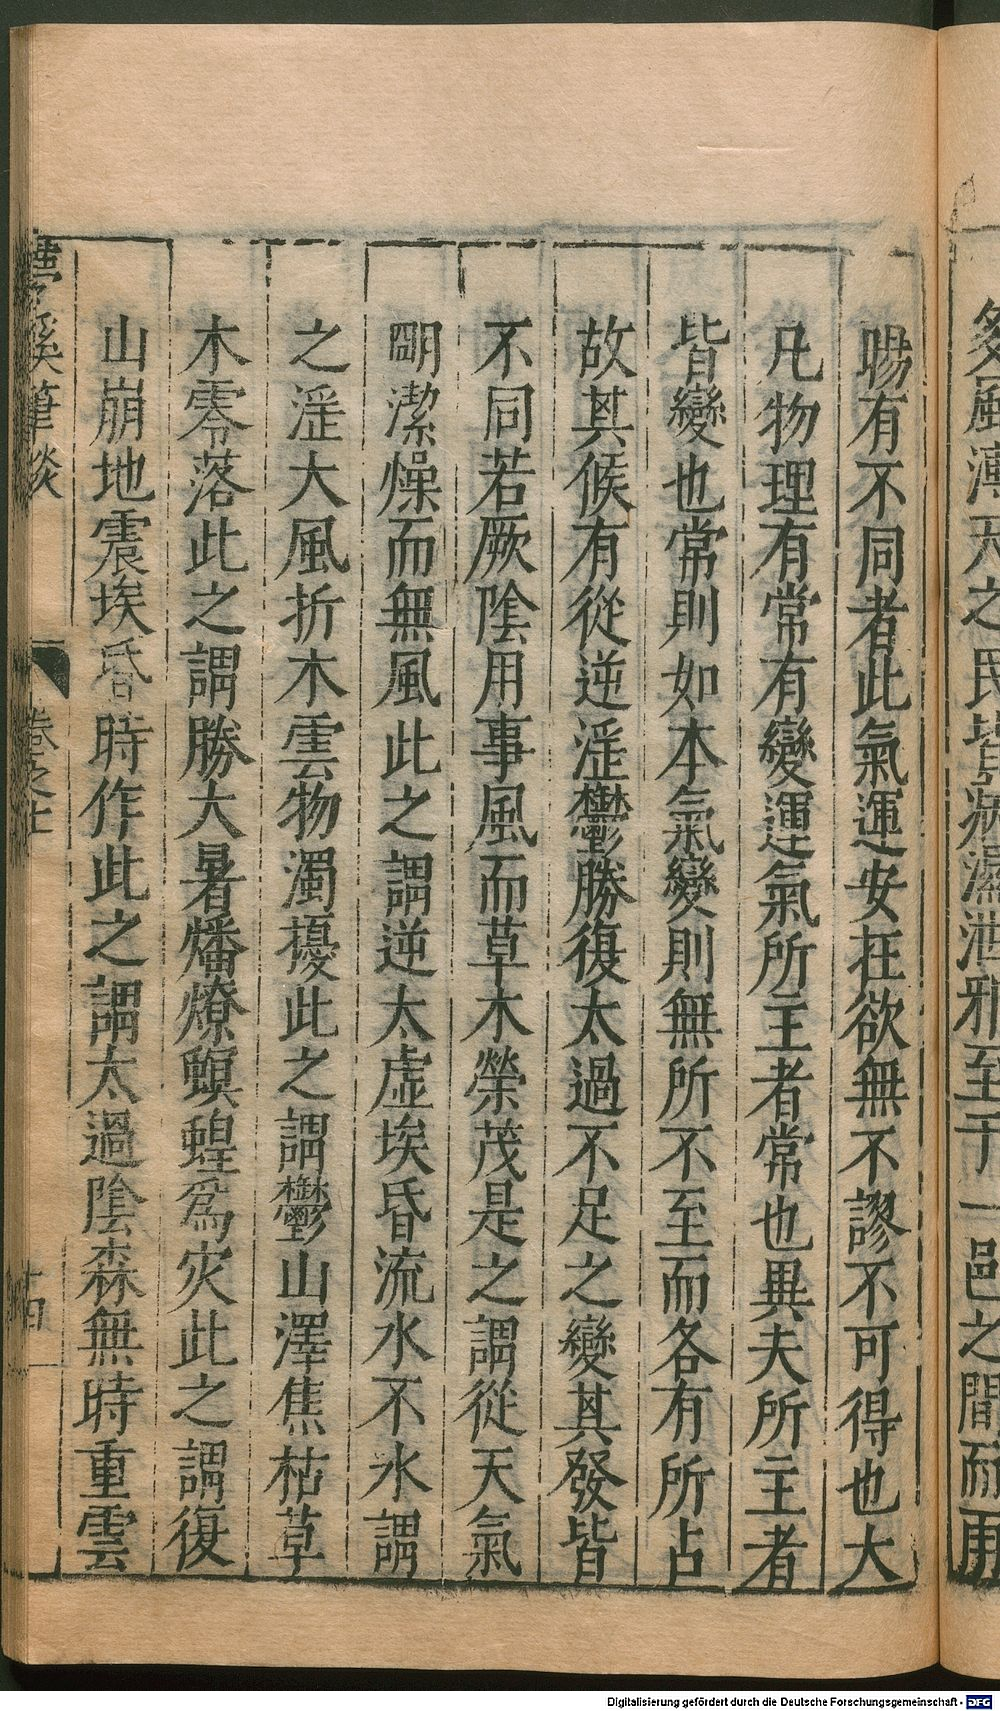 多風溥天之民皆病濕泄邪至于一邑之間而雨
暘有不同者此氣運安在欲無不謬不可得也大
凡物理有常有變運氣所主者常也異夫所主者
皆變也常則如本氣變則無所不至而各有所占
故其候有從逆淫鬱勝復太過不足之變其發皆
不同若厥陰用事風而草木榮茂是之謂從天氣
明潔燥而無風此之謂逆太虛埃昏流水不氷謂
之淫大風折木雲物濁擾此之謂鬱山澤焦枯草
木零落此之謂勝大暑燔燎螟蝗爲灾此之謂復
山崩地震埃昏時作此之謂太過陰森無時重雲
夢溪筆談 卷之七
Digitalisierung gefördert durch die Deutsche Forschungsgemeinschaft - DFG